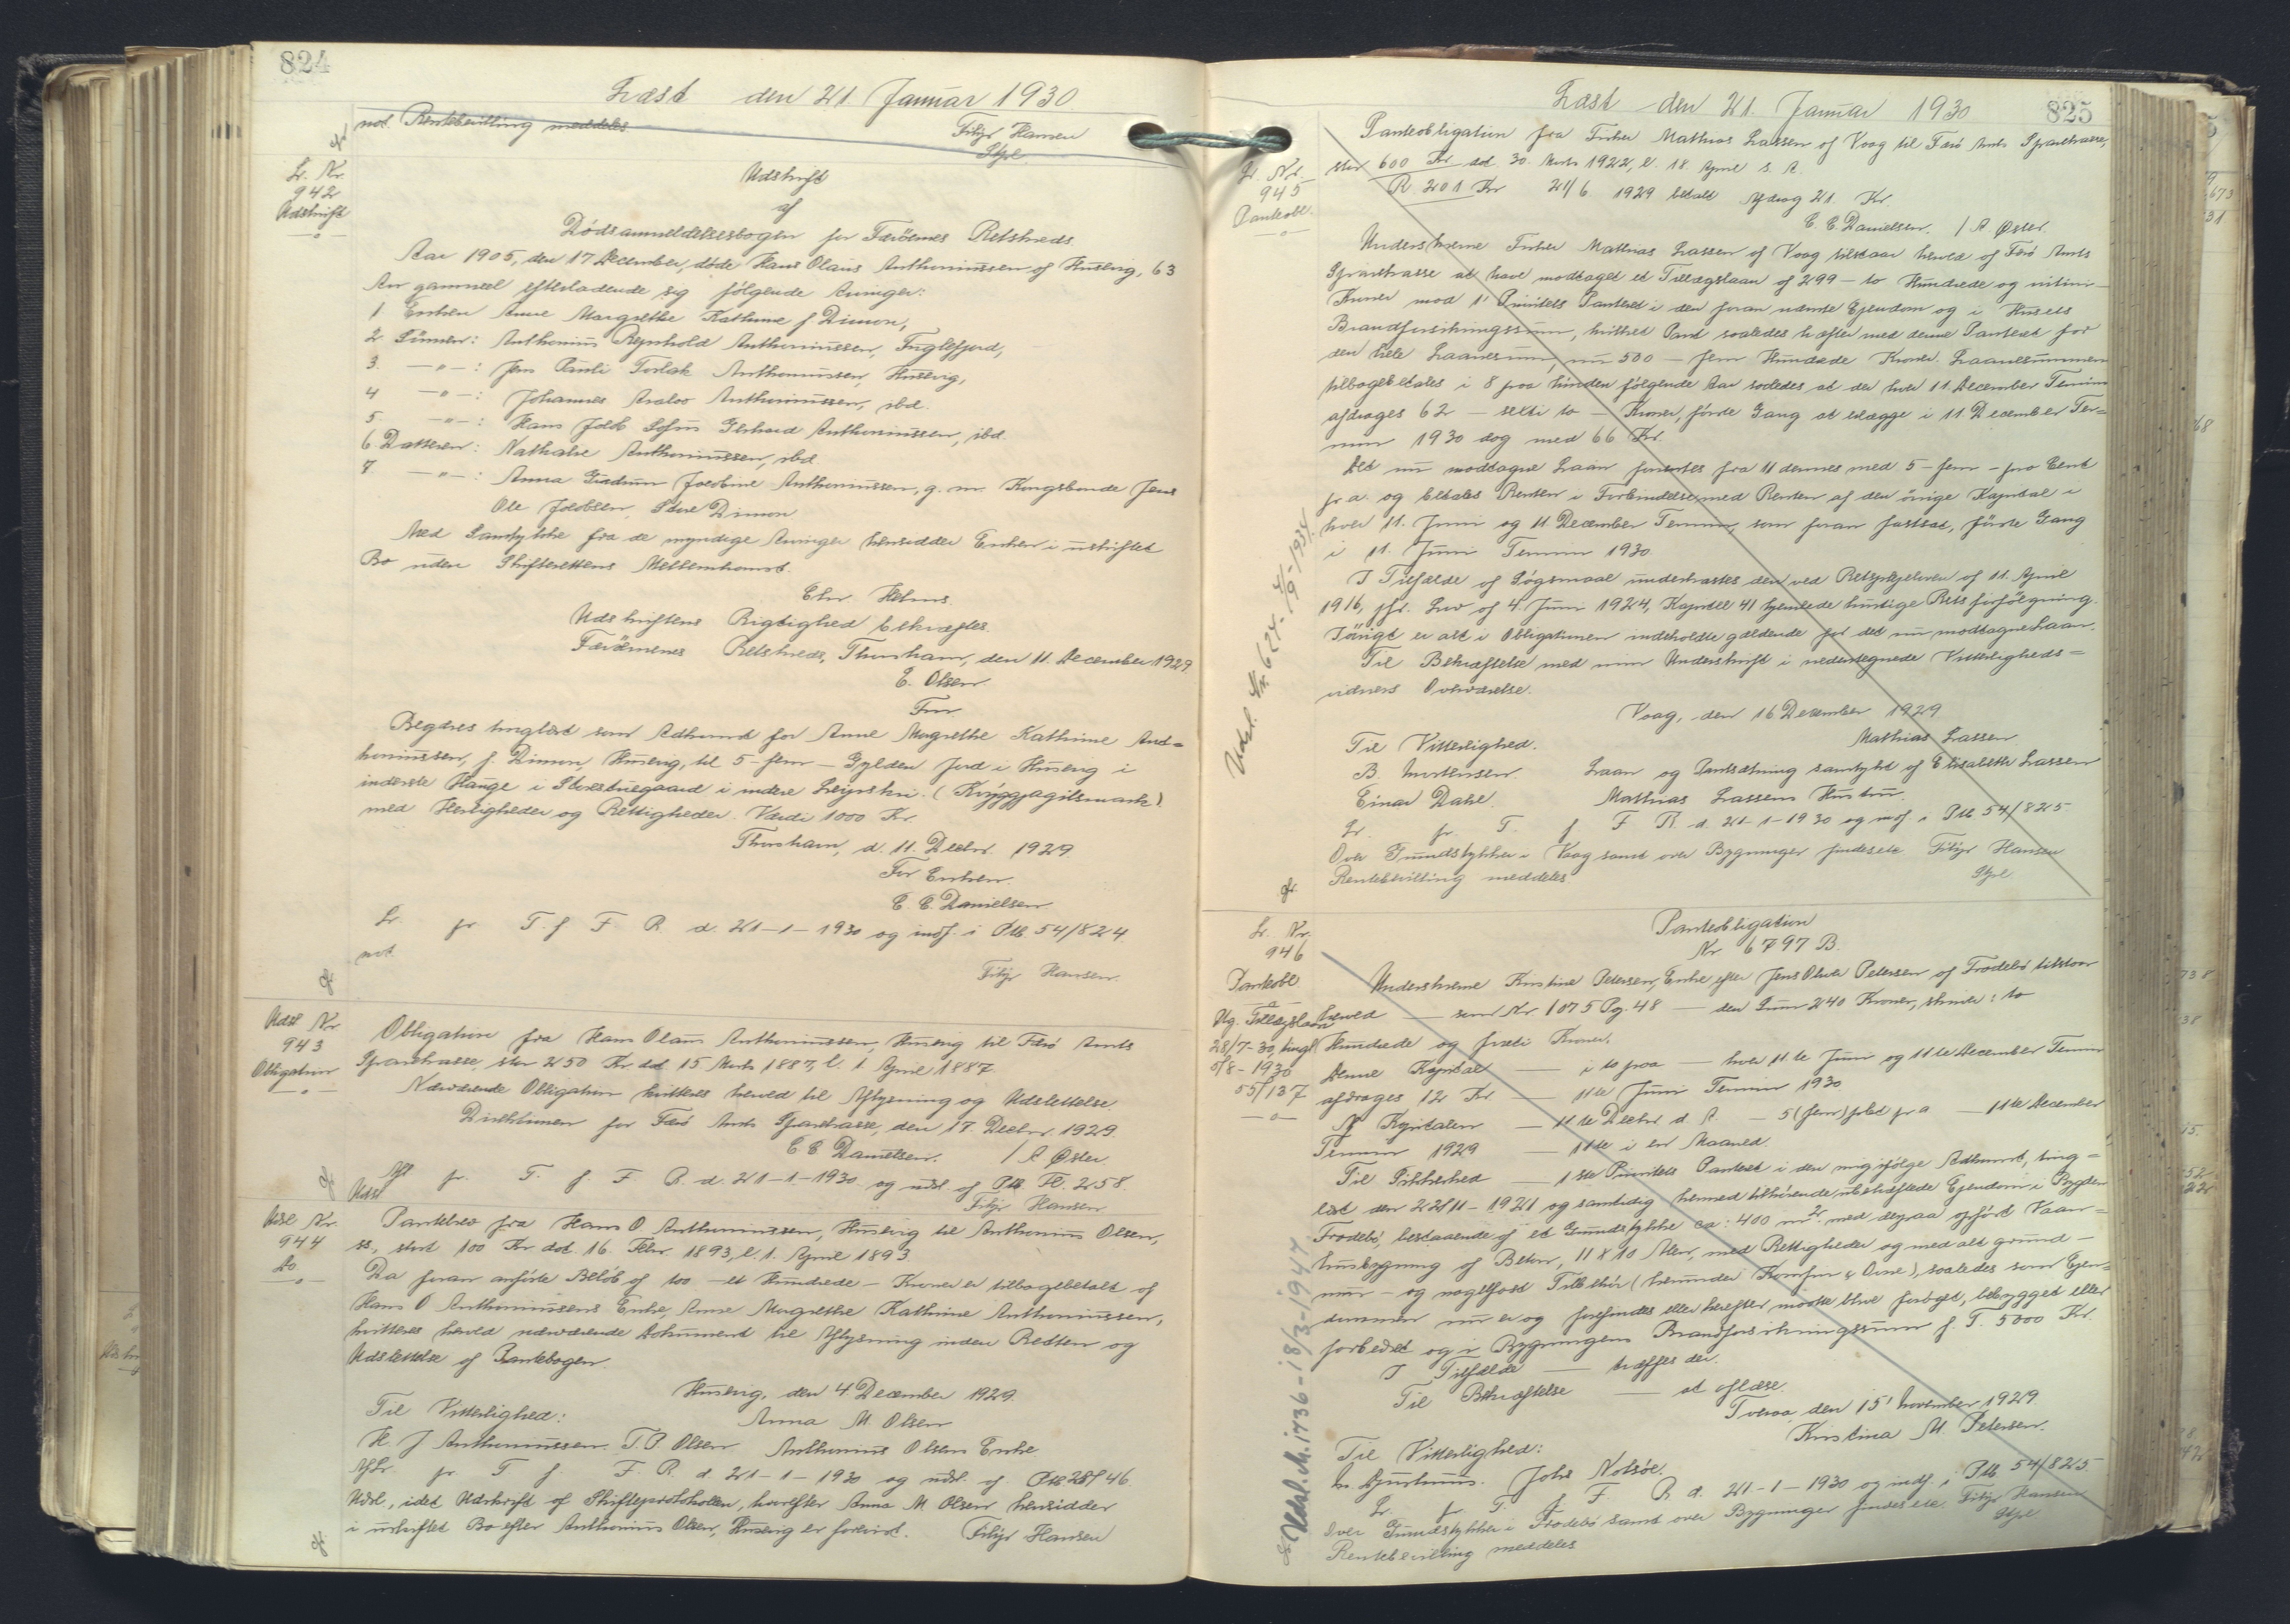 824
Læst den 21. Januar 1930
not. Rentebevilling meddeles
Filip Hansen
Styrel.
L. Nr.
942
Udskrift
Udskrift
af
Dødsanmeldelsesbogen for Færøernes Retskreds.
Aar 1905, den 17 December, døde Hans Olaus Anthoniussen af Husevig, 63
Aar gammel efterladende sig følgende Arvinger:
1. Enken Anne Margrethe Kathrine f. Dimon,
2. Sønnen: Anthonius Reynhold Anthoniussen, Fuglefjord,
3. —"—: Jens Pauli Torlak Anthoniussen, Husevig,
4 —"—: Johannes Anthoniussen, ibd.
5 —"—: Hans Jakob Sofus Gerhard Anthoniussen, ibd.
6. Datteren: Nathalie Anthoniussen, ibd.
7 —"—: Anna Gudrun Jacobine Anthoniussen, g. m. Kongsbonde Jens
Ole Jacobsen, Store Dimon
Med Samtykke fra de myndige Arvinger hensidder Enken i uskiftet
Bo uden Skifterettens Mellemkomst.
Chr. Helms.
Udskriftens Rigtighed bekræftes.
Færøernes Retskreds, Thorshavn, den 11. December 1929.
E. Olsen
Fm.
Begæres tinglæst som Adkomst for Anne Margrethe Kathrine Ant=
honiussen, f. Dimon, Husevig, til 5 - fem - Gylden Jord i Husevig i
inderste Hauge i Storestuegaard i indere Leynstri. (Kryggjagilsmark)
med Herligheder og Rettigheder. Værdi 1000 Kr.
Thorshavn, d. 11. Decbr. 1929
For Enken.
E. C. Danielsen
L. pr. T. f. F. R. d. 21-1-1930 og indf. i Ptb. 54/824
not.
Filip Hansen.
Udsl Nr
943
Obligation
Obligation fra Hans Olaus Anthoniussen, Husevig til Færø Amts
Sparekasse, stor 250 Kr dat 15 Marts 1887, l. 1 April 1887.
Nærværende Obligation kvitteres herved til Aflysning og Udslettelse.
Direktionen for Færø Amts Sparekasse, den 17. Decbr. 1929.
E C Danielsen. / A Øster
Afl pr. T. f. F R. d. 21-1-1930 og udsl. af Ptb. H. 258.
Udsl
Filip Hansen
Udsl Nr.
944
Do
Pantebrev fra Hans O Anthoniussen, Husevig til Anthonius Olsen,
ss, stort 100 Kr dat. 16. Febr. 1893, l. 1. April 1893.
Da foran anførte Beløb af 100 - et Hundrede - Kroner er tilbagebetalt af
Hans O Anthoniussens Enke, Anne Margrethe Kathrine Anthoniussen,
kvitteres herved nærværende Dokument til Aflysning inden Retten og
Udslettelse af Pantebogen.
Husevig, den 4. December 1929.
Til Vitterlighed: Anna M. Olsen
H. J Anthoniussen. T. P. Olsen Anthonius Olsens Enke.
Afl. pr. T f. F. R. d. 21-1-1930 og udsl. af Ptb. 28/46
Udsl, idet Udskrift af Skifteprotokollen, hvorefter Anna M Olsen hensidder
i uskiftet Bo efter Anthonius Olsen, Husevig er forevist. Filip Hansen
Læst den 21. Januar 1930
825
L. Nr.
945
Panteobl.
Panteobligation fra Fisker Mathias Lassen af Vaag til Færø Amts Sparekasse,
stor 600 Kr. dat. 30. Marts 1922, l. 18. April s. A.
R. 201 Kr 21/6 1929 betalt Afdrag 21. Kr.
E. C. Danielsen. / A. Øster.
Underskrevne Fisker Mathias Lassen af Vaag tilstaar herved af Færø Amts
Sparekasse at have modtaget et Tillægslaan af 299 - to Hundrede og nitini -
Kroner mod 1' Prioritets Panteret i den foran nævnte Ejendom og i Husets
Brandforsikringssum, hvilket Pant saaledes hæfter med denne Panteret for
den hele Laanesum, nu 500 - fem Hundrede Kroner. Laanesummen
tilbagebetales i 8 paa hinanden følgende Aar saaledes at der hver 11. December Termin
afdrages 62 - seksti to - Kroner, første Gang at erlægge i 11. December Ter=
min 1930 dog med 66 Kr.
Det nu modtagne Laan forrentes fra 11 dennes med 5 - fem - pro Cent
p. a. og betales Renten i Forbindelse med Renten af den øvrige Kapital i
hver 11. Juni og 11 December Termin, som foran fastsat, første Gang
i 11. Juni Termin 1930.
I Tilfælde af Søgsmaal underkastes den ved Retsplejeloven af 11. April
1916, jfr. Lov af 4. Juni 1924, Kapitel 41 hjemlede hurtige Retsforfølgning.
Iøvrigt er alt i Obligationen indeholdte gældende for det nu modtagne Laan.
Til Bekræftelse med min Underskrift i nedertegnede Vitterligheds=
vidners Overværelse.
Vaag, den 16 December 1929
Til Vitterlighed. Mathias Lassen
B. Mortensen. Laan og Pantsætning samtykt af Elisabeth Lassen
Einar Dahl. Mathias Lassens Hustru.
L. pr. T. f F R. d. 21-1-1930 og indf. i Ptb. 54/825
Over Grundstykker i Vaag samt over Bygninger findes ete. Filip Hansen
Rentebevilling meddeles. Styrel
Udsl. Nr. 624-
L. Nr.
946
Panteobl
Ug. Tillægslaan
28/7-30, tingl
5/8-1930
55/137
Panteobligation
Nr 6797 B.
Underskrevne Kristine Petersen, Enke efter Jens Oliver Petersen af Frodebø tilstaar
herved — som Nr. 1075 Pg. 48 — den Sum 240 Kroner, skriver: to
Hundrede og fyrreti Kroner.
Denne Kapital — i to paa — hver 11te Juni og 11te December Termin
afdrages 12 Kr. — 11te Juni Termin 1930
Af Kapitalen — 11te Decbr d. A. — 5 (fem) pCt p a — 11te December
Termin 1929 — 11te i en Maaned.
Til Sikkerhed — 1ste Prioritets Panteret i den mig ifølge Adkomst, ting=
læst den 22/11-1921 og samtidig hermed tilhørende, ubehæftede Ejendom i Bygden
Frodebø, bestaaende af et Grundstykke ca: 400 m². med derpaa opført Vaan=
husbygning af Beton, 11 x 10 Alen, med Rettigheder og med alt grund -
mur - og nagelfast Tilbehør (herunder Komfur & Ovne), saaledes som Ejen=
dommen nu er og forefindes eller herefter maatte blive forøget, bebygget eller
forbedret og i Bygningens Brandforsikringssum f. T. 5000 Kr.
I Tilfælde — træffes der.
Til Bekræftelse — at aflæse.
Tveraa, den 15' November 1929
Kristina M. Petersen.
Til Vitterlighed:
Johs Nolsøe.
L. pr. T. f F R d. 21-1-1930 og indf. i Ptb 54/825
Over Grundstykker i Frodebø samt over Bygninger findes ete. Filip Hansen
Rentebevilling meddeles Styrel
Udsl. N. 1736-18/3-1947